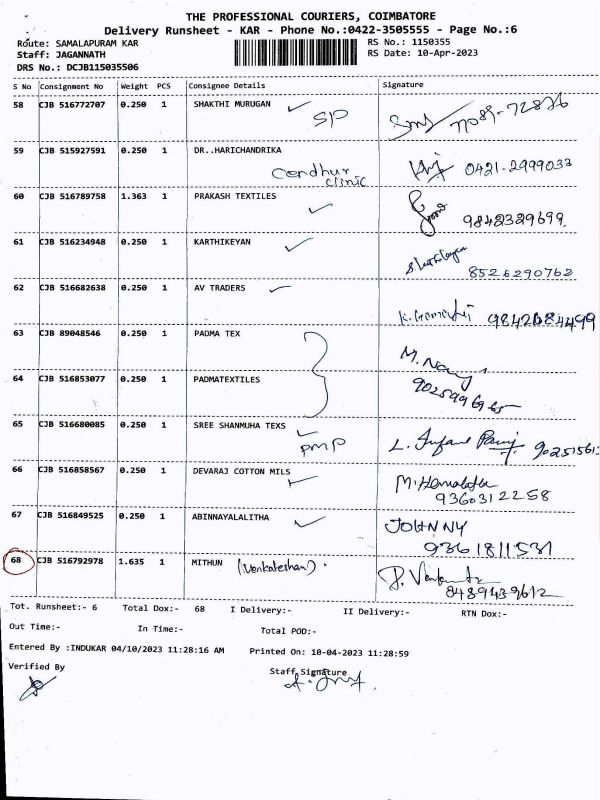 THE PROFESSIONAL COURIERS, COIMBATORE
Delivery Runsheet - KAR - Phone No.:0422-3505555 - Page No.:6
Route: SAMALAPURAM KAR RS No.: 1150355
Staff: JAGANNATH RS Date: 10-Apr-2023
DRS No.: DCJB115035506
S No Consignment No Weight PCS Consignee Details Signature
58 CJB 516772707 0.250 1 SHAKTHI MURUGAN
SP
59 CJB 515927591 0.250 1 DR..HARICHANDRIKA
0421-2999033
clinic
60 CJB 516789758 1.363 1 PRAKASH TEXTILES
9842329699
61 CJB 516234948 0.250 1 KARTHIKEYAN
8526290762
62 CJB 516682638 0.250 1 AV TRADERS
9842684499
63 CJB 89048546 0.250 1 PADMA TEX
64 CJB 516853077 0.250 1 PADMATEXTILES
65 CJB 516680085 0.250 1 SREE SHANMUHA TEXS
PMP
66 CJB 516858567 0.250 1 DEVARAJ COTTON MILS
M.Hemalatha
9360312258
67 CJB 516849525 0.250 1 ABINNAYALALITHA
JOHNNY
9361811531
68 CJB 516792978 1.635 1 MITHUN (Venkateshan)
8489439612
Tot. Runsheet:- 6 Total Dox:- 68 I Delivery:- II Delivery:- RTN Dox:-
Out Time:- In Time:- Total POD:-
Entered By :INDUKAR 04/10/2023 11:28:16 AM Printed On: 10-04-2023 11:28:59
Verified By Staff Signature